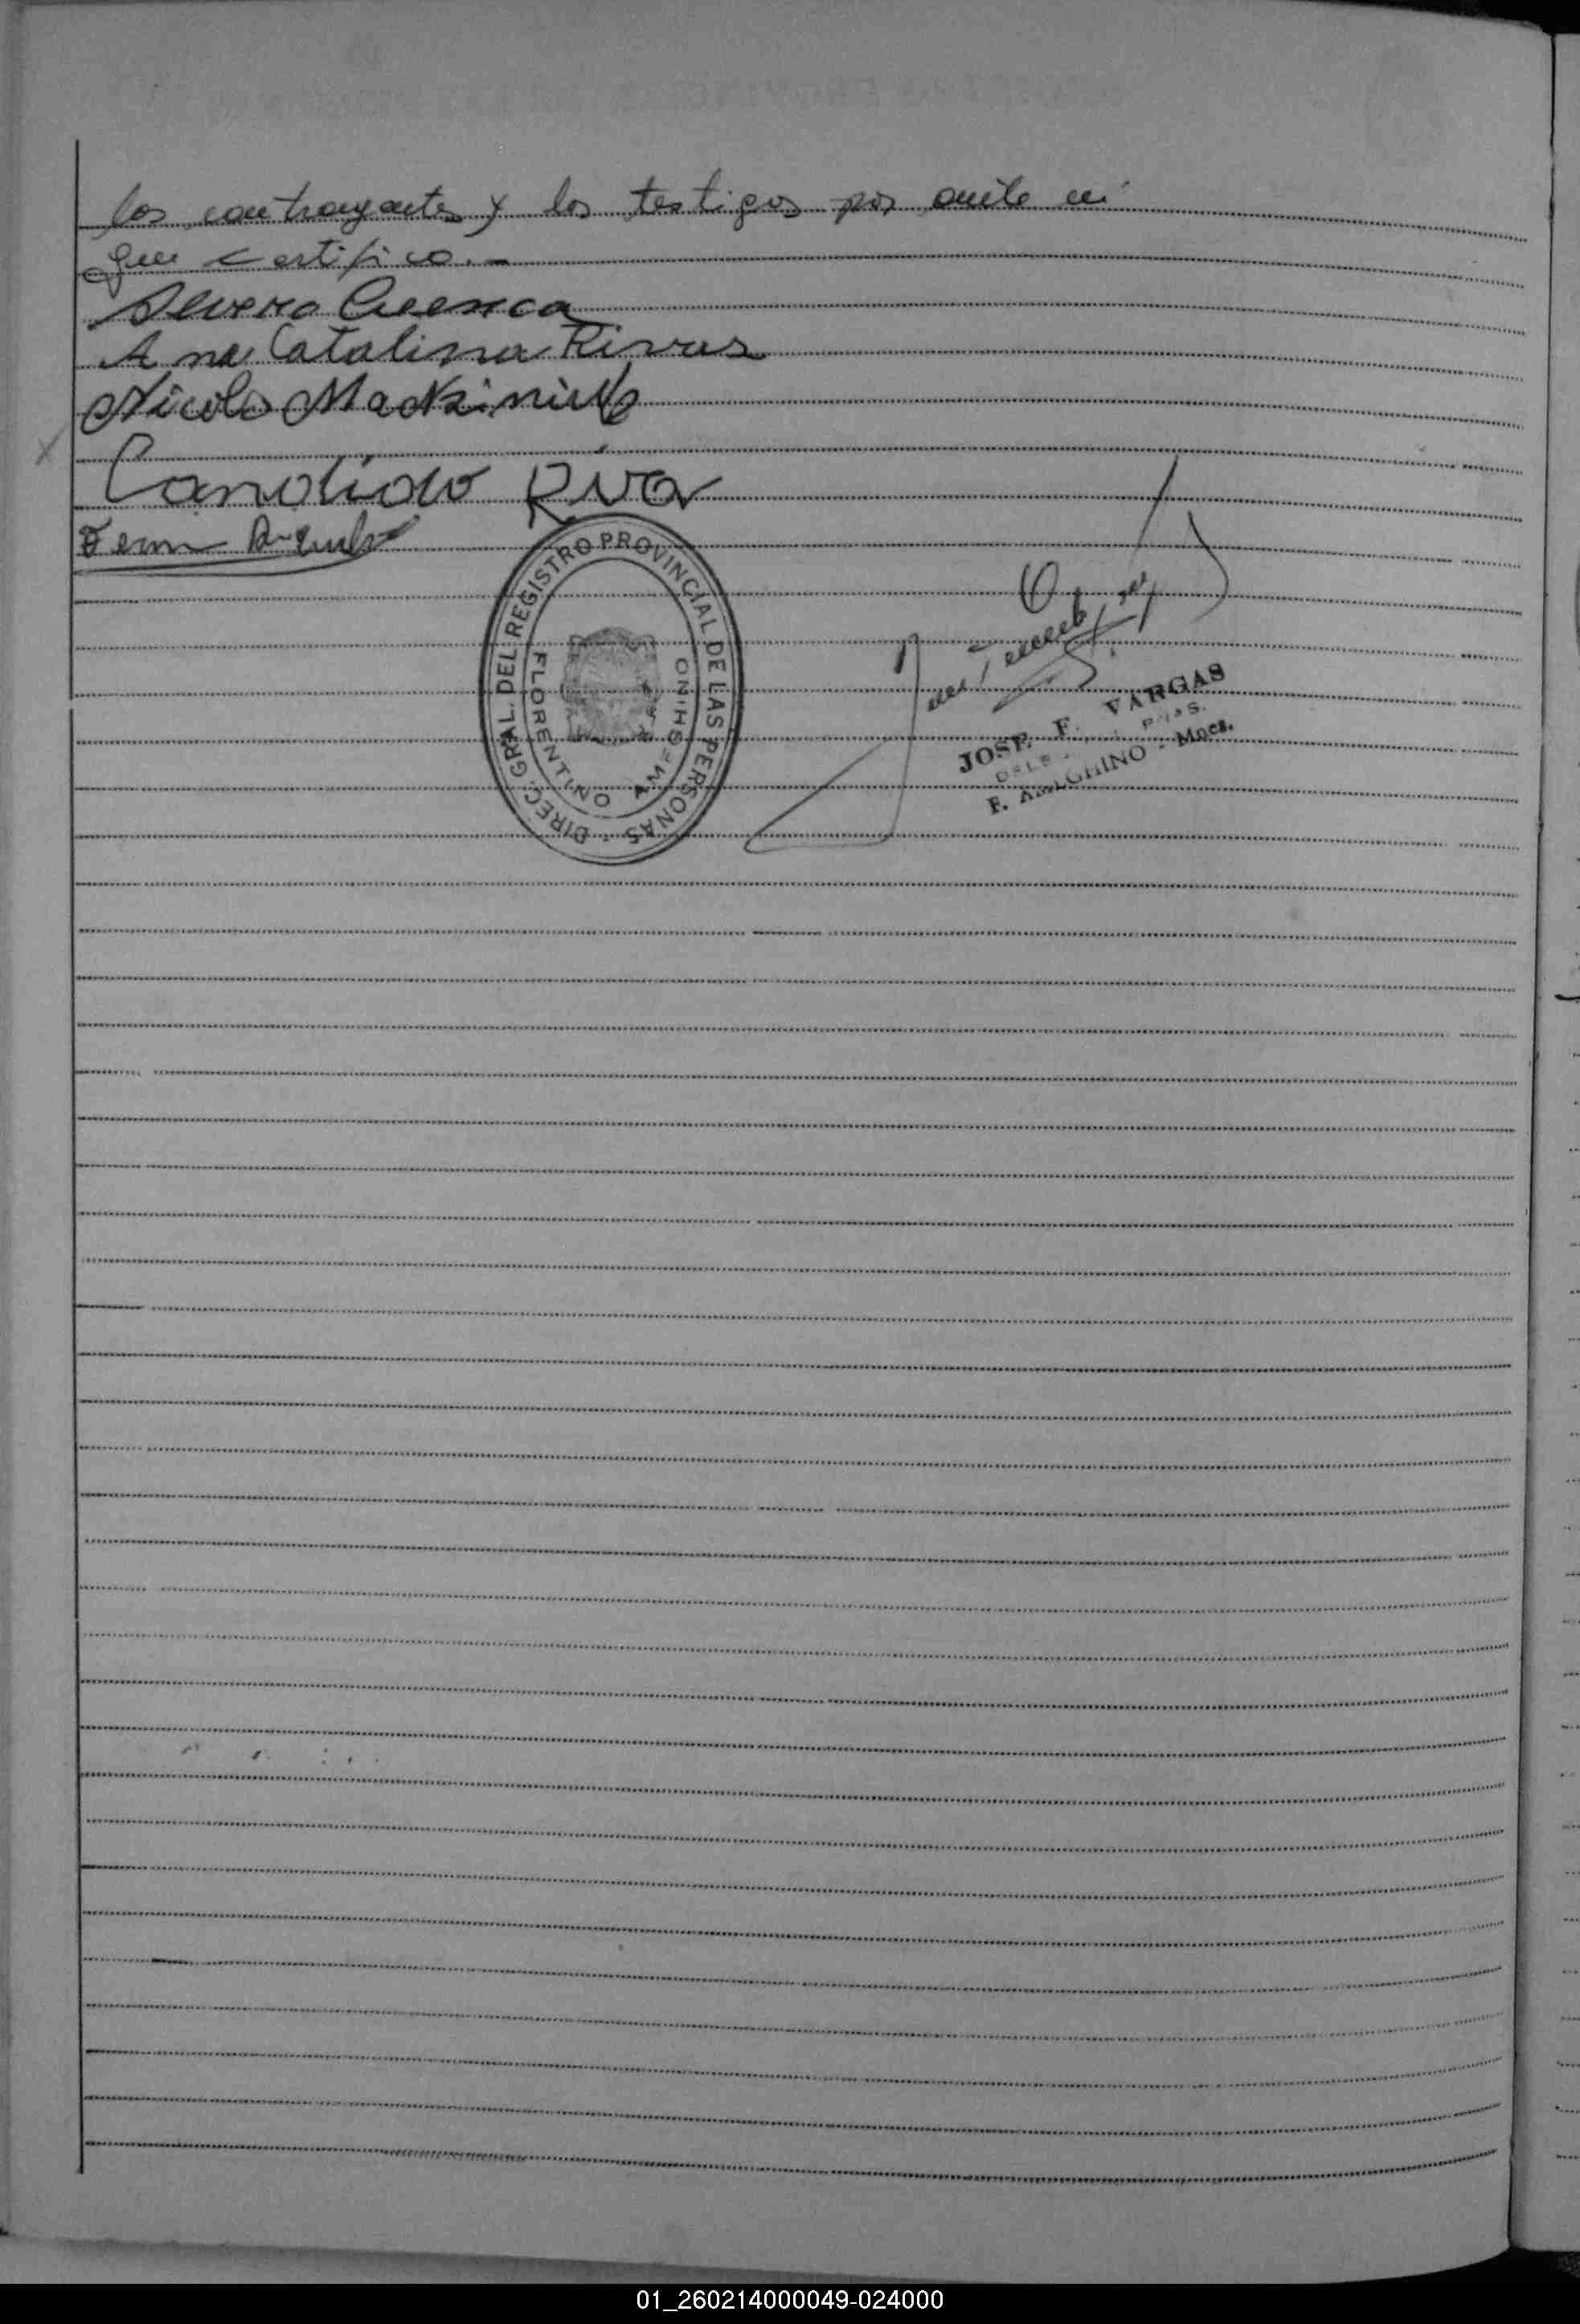 los contrayentes y los testigos por ante mi
que certifico.-
Severo Cuenca
Ana Catalina Rivas
Nicolo
Candido Riva
DIREC. GRAL. DEL REGISTRO PROVINCIAL DE LAS PERSONAS
FLORENTINO AMEGHINO
JOSE F. VARGAS
F. AMEGHINO - Mnes.
01_260214000049-024000